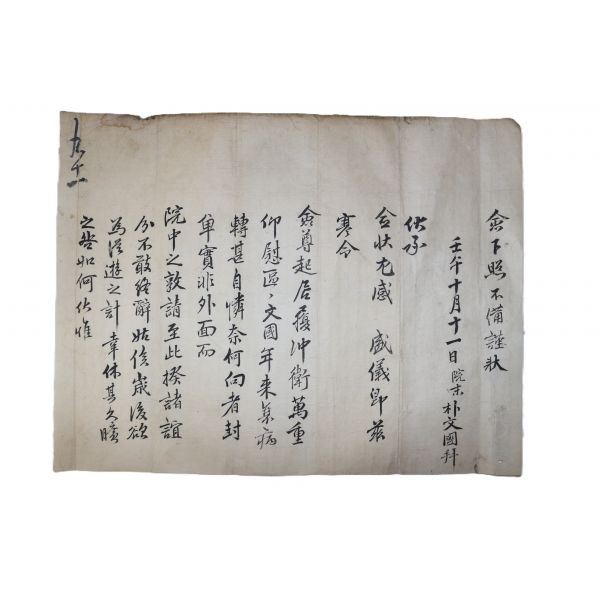 僉下照不備謹狀
壬午十月十一日院末朴文國拜
伏承
僉狀尤感 盛儀卽玆
寒令
僉尊起居獲冲衛萬重
仰慰區〻文國年來氣病
轉甚自憐奈何向者封
單實非外面而
院中之敦請至此揆諸誼
分不敢終辭姑俟歲後欲
爲從遊之計 幸休其久曠
之咎如何伏惟